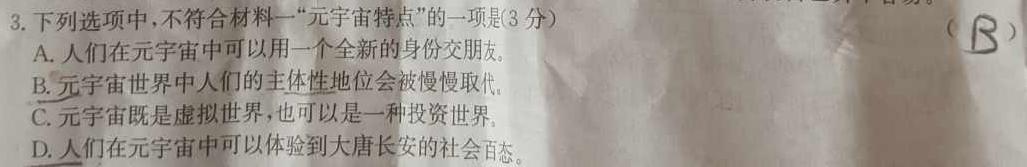 3. 下列选项中,不符合材料一“元宇宙特点”的一项是(3分) ( B )
A. 人们在元宇宙中可以用一个全新的身份交朋友。
B. 元宇宙世界中人们的主体性地位会被慢慢取代。
C. 元宇宙既是虚拟世界,也可以是一种投资世界。
D. 人们在元宇宙中可以体验到大唐长安的社会百态。